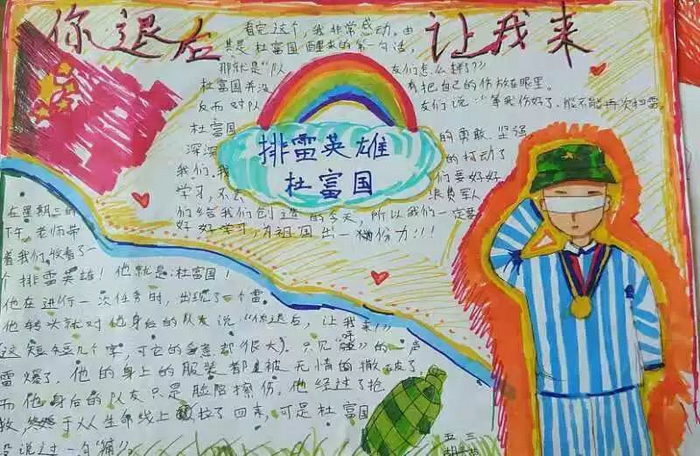 你退后 让我来
排雷英雄
杜富国
看完这个，我非常感动。由
其是杜富国醒来的第一句话，
那就是“队 友们怎么样？”
杜富国并没 有把自己的伤放在眼里。
反而对队 友们说“等我伤好了，能不能再次扫雷
杜富国 的勇敢、坚强
深深 的打动了
我们。我 们要好好
学习，不 浪费军人
们给我们创造 的今天，所以我们一定要
好好学习，为祖国出一份力！！！
在星期三的
下午，老师带
着我们收看了一
个排雷英雄！他就是：杜富国！
他在进行一次任务时，出现了个雷，
他转头就对他身后的队友说“你退后，让我来！”
（这短短几个字，可它的意意都很大）。只见“嘭”的一声
雷爆了，他的身上的服装都被无情的撒破了，
而他身后的队友只是脸陪擦伤。他经过了抢
救 于从生命线上拉了回来，可是杜富国
没说过一句“痛”。
五 三